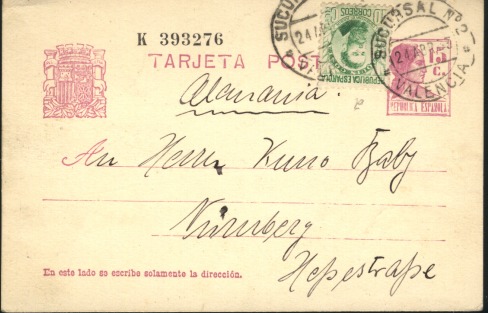 K 393276
TARJETA POST
SUCURSAL Nº 2
VALENCIA
REPUBLICA ESPAÑOLA
15 C.
REPUBLICA ESPAÑOLA
Alemania.
An Herrn Kuno
Nürnberg
En este lado se escribe solamente la dirección.